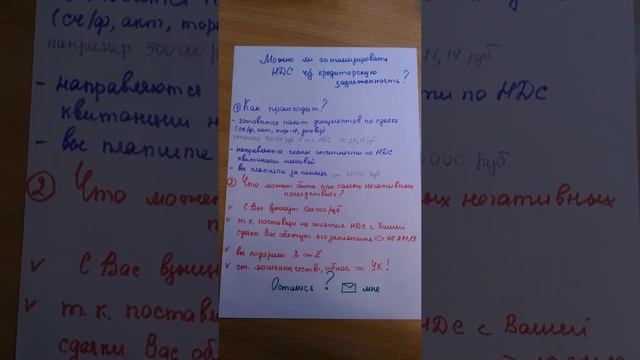 Можно ли оптимизировать
НДС ч/з кредиторскую
задолженность?
① Как происходит?
- готовится пакет документов по сделке
(сч/ф, акт, торг-я, договор)
например 500 000 руб в т.ч. НДС 76 271,19 руб
- направляются сканы отчетности по НДС
квитанции налоговой
- вы платите за помощь от 10 000 руб
② Что может быть при самых негативных
последствиях?
✓ С Вас взыщут 500 000 руб
✓ т.к. поставщик не оплатил НДС с Вашей
сделки Вас обяжут его заплатить => 76 271,19
✓ вы подарили
✓ ст. мошенничество, обнал = УК!
Остались ? мне